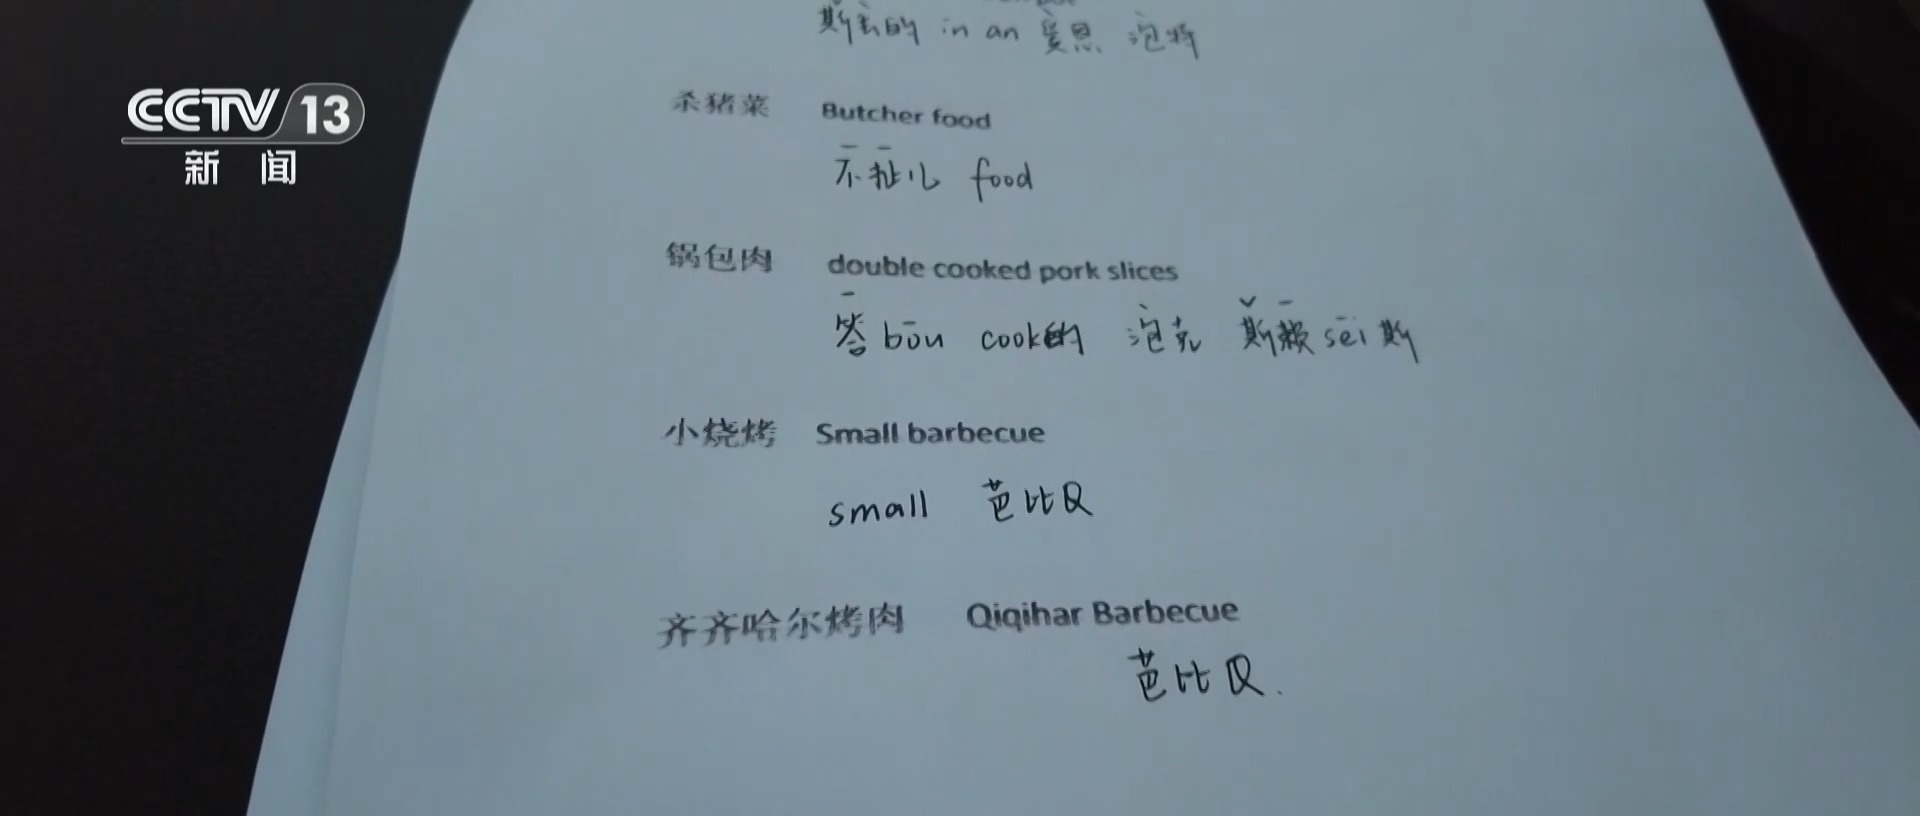 CCTV 13
新闻
斯去的 in an 爱恩 泡特
杀猪菜 Butcher food
不扯儿 food
锅包肉 double cooked pork slices
答bōu cook的 泡克 斯赖sēi斯
小烧烤 Small barbecue
small 芭比Q
齐齐哈尔烤肉 Qiqihar Barbecue
芭比Q.